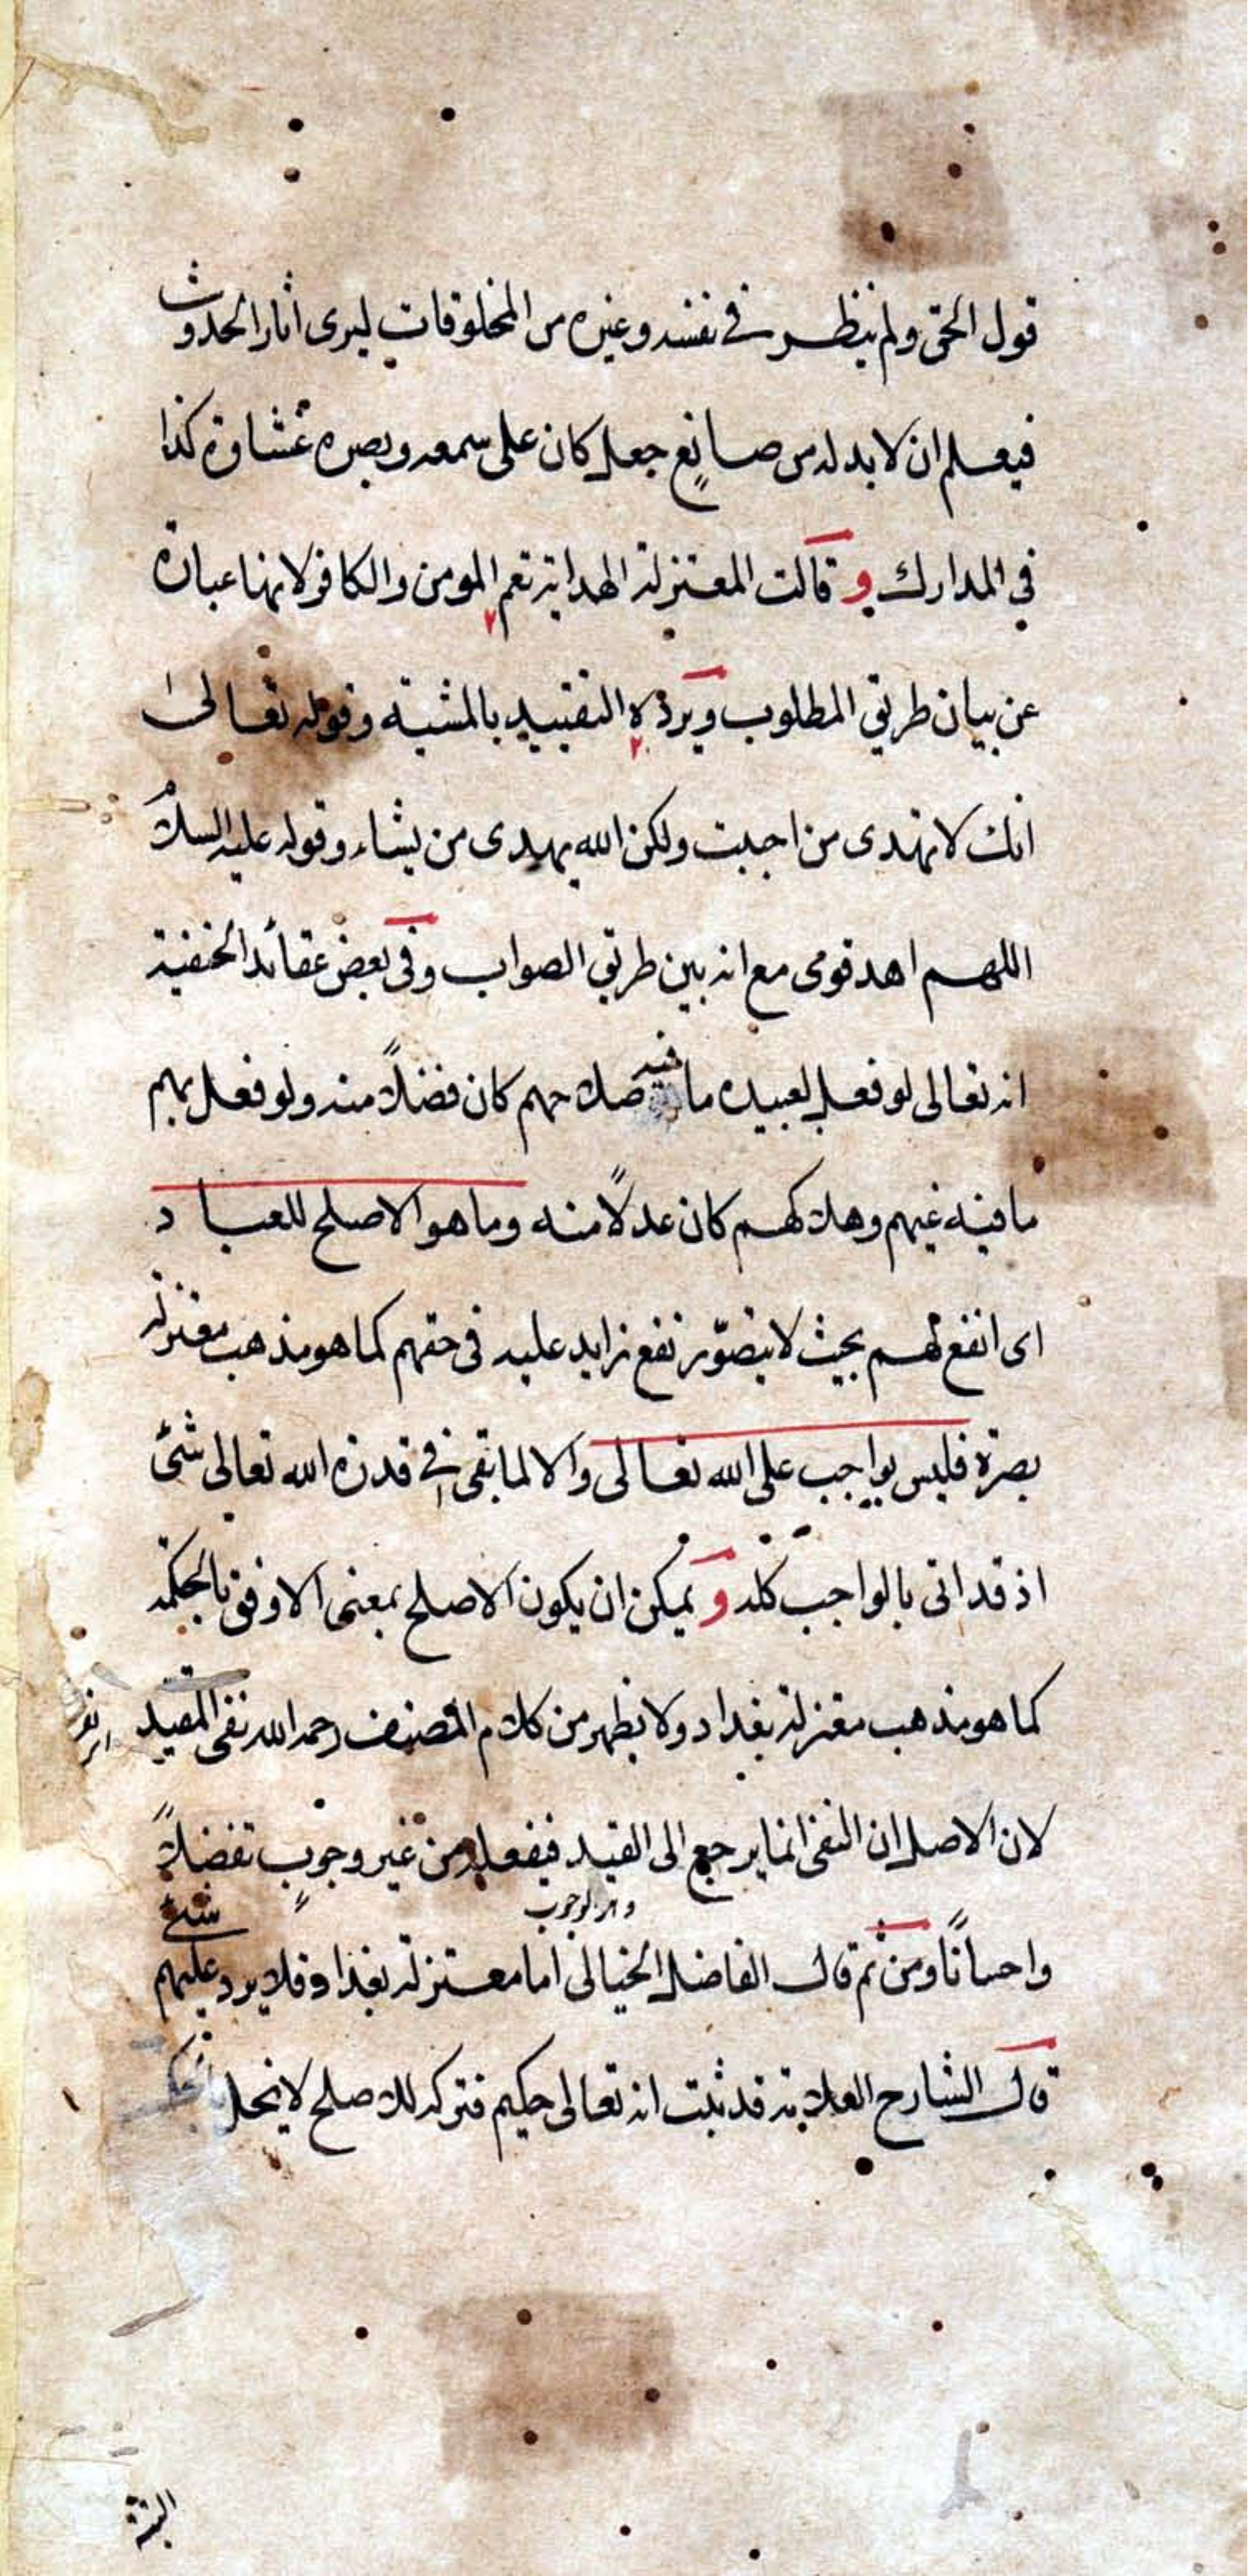 قول الحق ولم ينظر فى نفسه وغيره من المخلوقات ليرى اثار الحدوث
فيعلم ان لا بد له من صانع جعل كان على سمعه وبصره غشاوة كذا
فى المدارك و قالت المعتزلة الهداية تعم المومن والكافر لانها عبارة
عن بيان طريق المطلوب ويرده التقييد بالمشية وقوله تعالى
انك لا تهدى من احببت ولكن الله يهدى من يشاء وقوله عليه السلام
اللهم اهد قومى مع انه بين طريق الصواب وفى بعض عقائد الحنفية
انه تعالى لو فعل لعبيده ما فيه صلاحهم كان فضلاً منه ولو فعل بهم
ما فيه غيهم وهلاكهم كان عدلاً منه وما هو الاصلح للعباد
اى انفع لهم بحيث لا يتصوّر نفع زايد عليه فى حقهم كما هو مذهب معتزلة
بصرة فليس بواجب على الله تعالى والا لما بقى فى قدرة الله تعالى شئ
اذ قد اتى بالواجب كله و يمكن ان يكون الاصلح بمعنى الاوفق بالحكمة
كما هو مذهب معتزلة بغداد ولا يظهر من كلام المصنف رحمه الله نفى المقيد
لان الاصل ان النفى انما يرجع الى القيد فيفعله من غير وجوبٍ تفضلاً
وهو الوجوب
واحساناً ومن ثم قال الفاضل الخيالى اما معتزلة بغداد فلا يرد عليهم شئ
قال الشارح العلامة قد ثبت انه تعالى حكيم فتركه للاصلح لا يخل
البتة